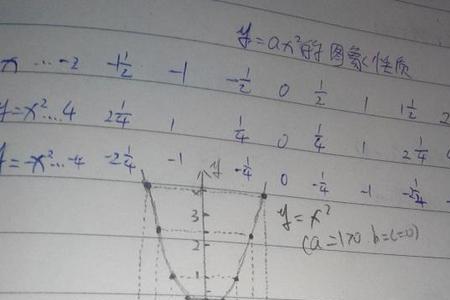 y=ax²的图象性质
x ... -2 -1½ -1 -½ 0 ½ 1 1½ 2
y=x² ... 4 2¼ 1 ¼ 0 ¼ 1 2¼
y=-x² ... -4 -2¼ -1 -¼ 0 -¼ -1 -2¼
y
3
2
1
y=x²
(a=1>0 b=c=0)